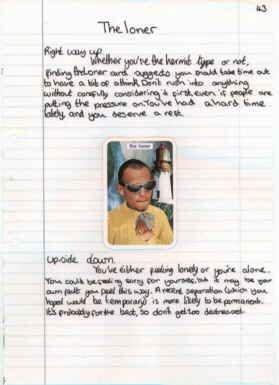 43
The loner
Right way up
Whether you're the hermit type or not,
finding the loner card suggests you should take time out
to have a bit of a think. Don't rush into anything
without carefully considering it first, even if people are
putting the pressure on. You've had a hard time
lately and you deserve a rest.
the loner
upside down.
You're either feeling lonely or you're alone.
You could be feeling sorry for yourself, but it may be your
own fault you feel this way. A recent separation (which you
hoped would be temporary) is more likely to be permanent.
It's probably for the best, so don't get too distressed.